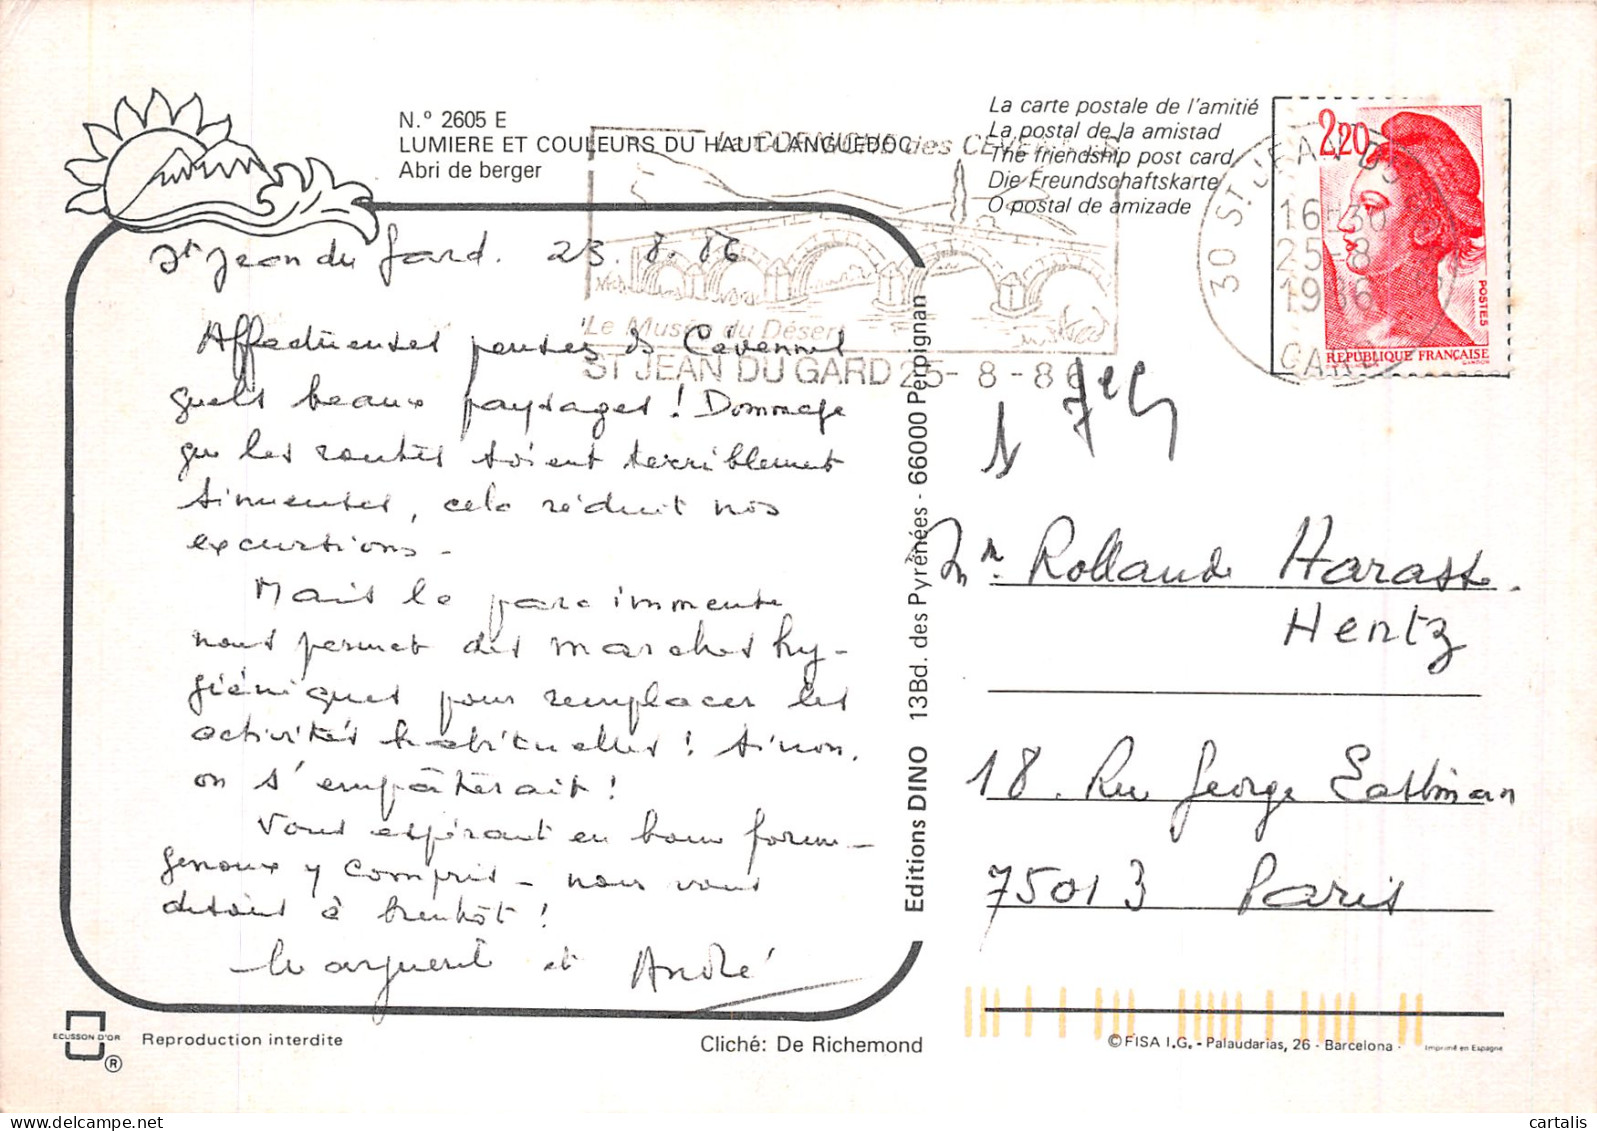 N.º 2605 E
LUMIERE ET COULEURS DU HAUT LANGUEDOC
Abri de berger
St Jean du Gard. 23.8.86
Affectueuses pensées des Cévennes
quels beaux paysages ! Dommage
que les routes soient terriblement
sinueuses, cela réduit nos
excursions -
Mais le parc immense
nous permet des marches hy-
giéniques pour remplacer les
activités habituelles ! Sinon,
on s'empâterait !
Vous espérant en bonne forme -
genoux y compris - nous vous
disons à bientôt !
Marguerite et André
ECUSSON D'OR
®
Reproduction interdite
Cliché: De Richemond
Editions DINO 13Bd. des Pyrénées - 66000 Perpignan
La carte postale de l'amitié
La postal de la amistad
The friendship post card
Die Freundschaftskarte
O postal de amizade
La CORNICHE des CEVENNES
Le Musée du Désert
ST JEAN DU GARD 25-8-86
30 ST JEAN DU
16-30
25-8
1986
GARD
2,20
POSTES
REPUBLIQUE FRANÇAISE
Rollande Harasse
Hertz
18. Rue George Eastman
75013 Paris
© FISA I.G. - Palaudarias, 26 - Barcelona - Imprimé en Espagne
cartalis